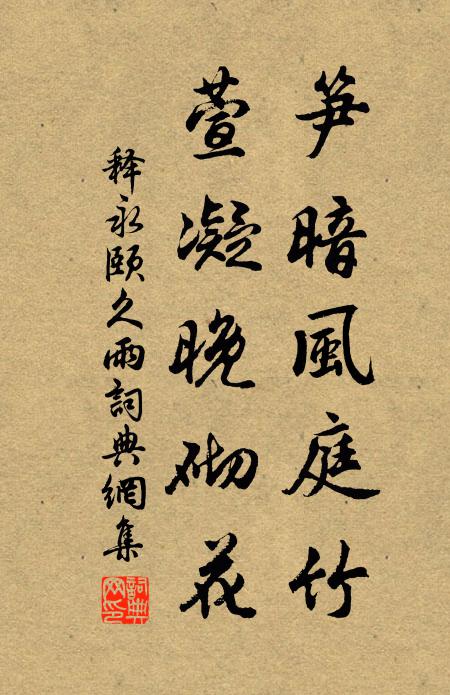 笋暗風庭竹
萱凝晚砌花
释永頤久雨詞典網集
詞典網印